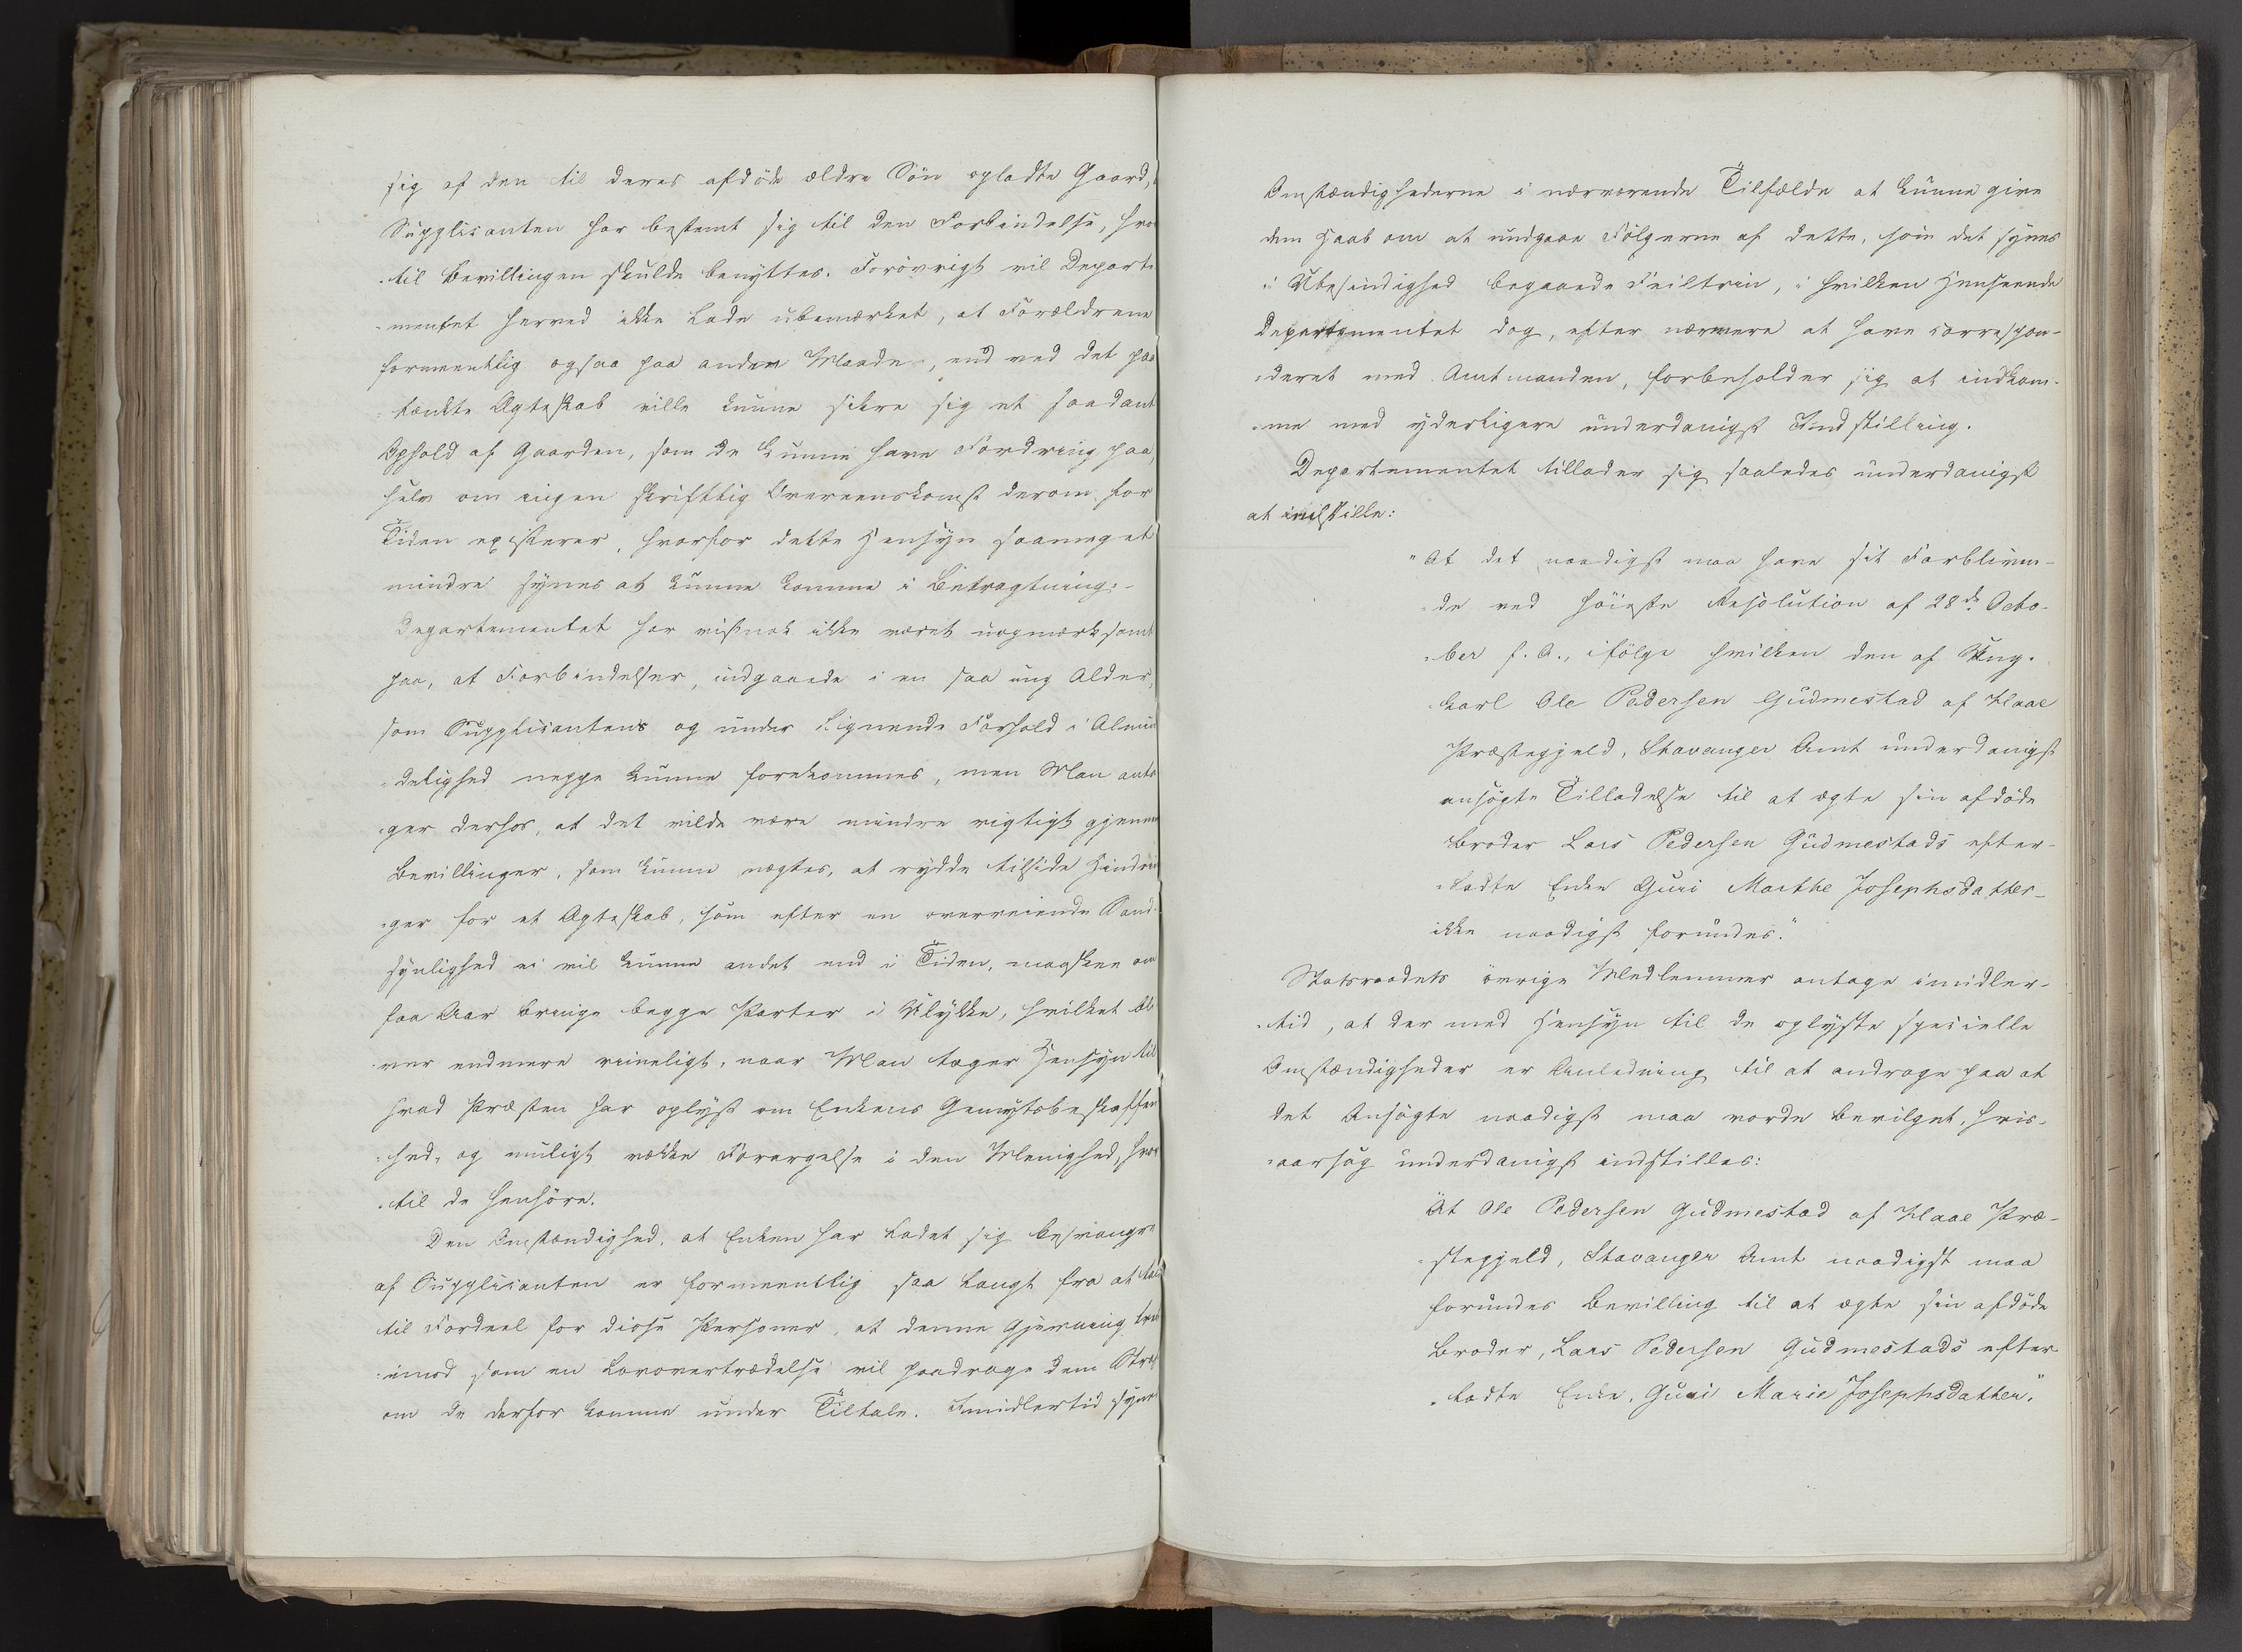 sig af den til deres afdöde ældre Sön opladte Gaard,
Supplicanten har bestemt sig til den Forbindelse, hvor
-til Bevillingen skulde benyttes. Forövrigt vil Departe
-mentet herved ikke lade ubemærket, at Forældrene
formeentlig ogsaa paa anden Maade, end ved det paa
-tænkte Ægteskab ville kunne sikre sig et saadant
Ophold af Gaarden, som de kunne have Fordring paa,
selv om ingen skriftlig Overeenskomst derom for
Tiden existerer, hvorfor dette Hensyn saameget
mindre synes at kunne komme i Betragtning.-
Departementet har vistnok ikke været uopmærksomt
paa, at Forbindelser, indgaaede i en saa ung Alder,
som Supplicantens og under lignende Forhold i Almin
-delighed neppe kunne forekommes, men Man anta
-ger derhos, at det vilde være mindre rigtigt gjennem
Bevillinger, som kunne nægtes, at rydde tilside Hindrin
-ger for et Ægteskab, som efter en overveiende Sand-
synlighed ei vil kunne andet end i Tiden, maaskee om
faa Aar bringe begge Parter i Ulykke, hvilket bli
-ver endmere rimeligt, naar Man tager Hensyn til
hvad Præsten har oplyst om Enkens Gemytsbeskaffen
-hed, og muligt vække Forargelse i den Menighed, hvor
-til de henhöre.
Den Omstændighed, at Enken har ladet sig besvangre
af Supplicanten er formeentlig saa langt fra at tale
til Fordeel for disse Personer, at denne Gjerning tvert
-imod som en Lovovertrædelse vil paadrage dem Straf
om de derfor komme under Tiltale. Imidlertid synes
Omstændighederne i nærværende Tilfælde at kunne give
dem Haab om at undgaae Fölgerne af dette, som det synes
i Ubesindighed begaaede Feiltrin, i hvilken Henseende
Departementet dog, efter nærmere at have correspon-
-deret med Amtmanden, forbeholder sig at indkom-
-me med yderligere underdanigst Indstilling.
Departementet tillader sig saaledes underdanigst
at indstille:
"At det naadigst maa have sit Forbliven-
-de ved höieste Resolution af 28de Octo-
-ber f. A., ifölge hvilken den af Ung-
-karl Ole Pedersen Gudmestad af Haae
Præstegjeld, Stavanger Amt underdanigst
ansögte Tilladelse til at ægte sin afdöde
Broder Lars Pedersen Gudmestads efter-
-ladte Enke Guri Marthe Josephsdatter-
ikke naadigst forundes."
Statsraadets övrige Medlemmer antage imidler-
-tid, at der med Hensyn til de oplyste specielle
Omstændigheder er Anledning til at andrage paa at
det Ansögte naadigst maa vorde bevilget, hvis-
-aarsag underdanigst indstilles:
"At Ole Pedersen Gudmestad af Haae Præ-
-stegjeld, Stavanger Amt naadigst maa
forundes Bevilling til at ægte sin afdöde
Broder, Lars Pedersen Gudmestads efter-
-ladte Enke, Guri Marie Josephsdatter."